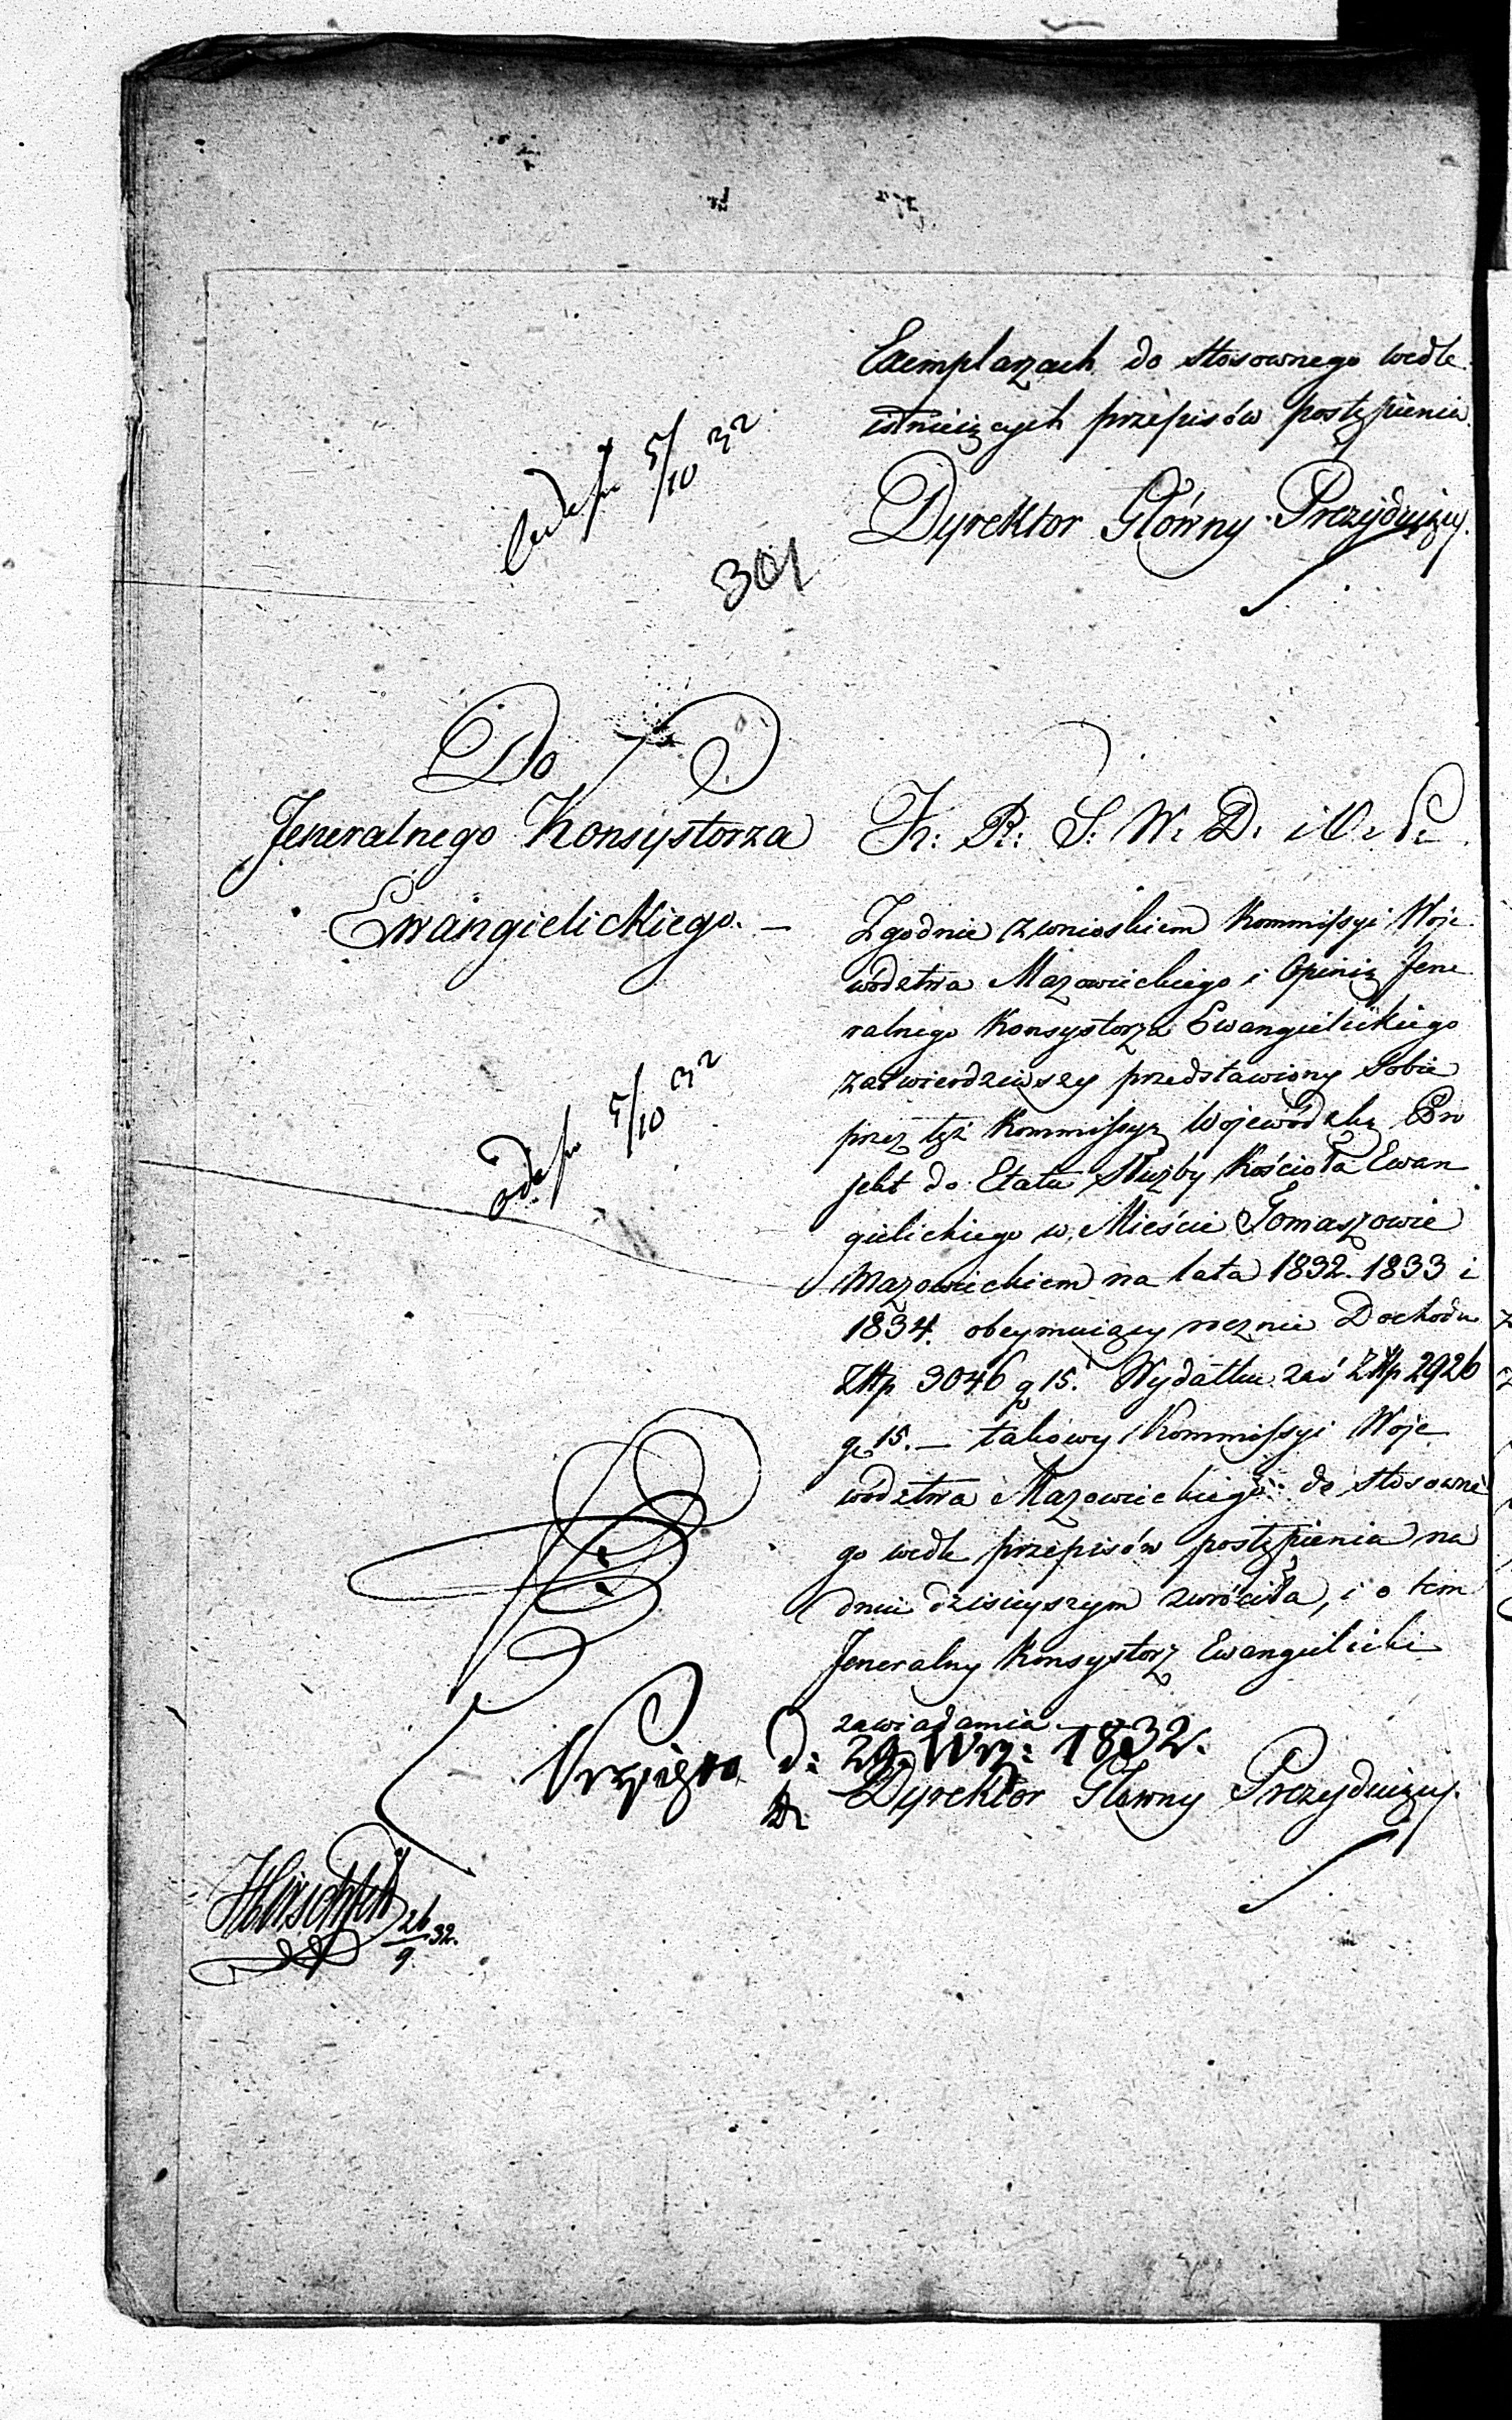 Exemplarzach do stosownego wedle
istnieiących przepisów postąpienia.
Dyrektor Główny Prezyduiący.
5/10 32
301
Do
Jeneralnego Konsystorza
Ewangielickiego. —
K: R: S: W: D: i O: P:
Zgodnie z wnioskiem Kommissyi Woje
wództwa Mazowieckiego i Opinią Jene
ralnego Konsystorza Ewangielickiego
zatwierdziwszy przedstawiony sobie
przez tęż Kommissyą Wojewódzką Pro
jekt do Etatu Służby Kościoła Ewan
gielickiego w Mieście Tomaszowie
Mazowieckiem na lata 1832. 1833 i
1834. obeymuiący rocznie Dochodu
Złtp 3046 g 15. Wydatku zaś Złtp 2926
gr 15. — takowy Kommissyi Woje
wództwa Mazowieckiego do stosowne
go wedle przepisów postąpienia na
dniu dzisieyszym zwróciła, i o tem
Jeneralny Konsystorz Ewangielicki
zawiadamia
5/10 32
Przyięto d: 29 Wrz: 1832.
Dyrektor Główny Prezyduiący.
26/9 32.